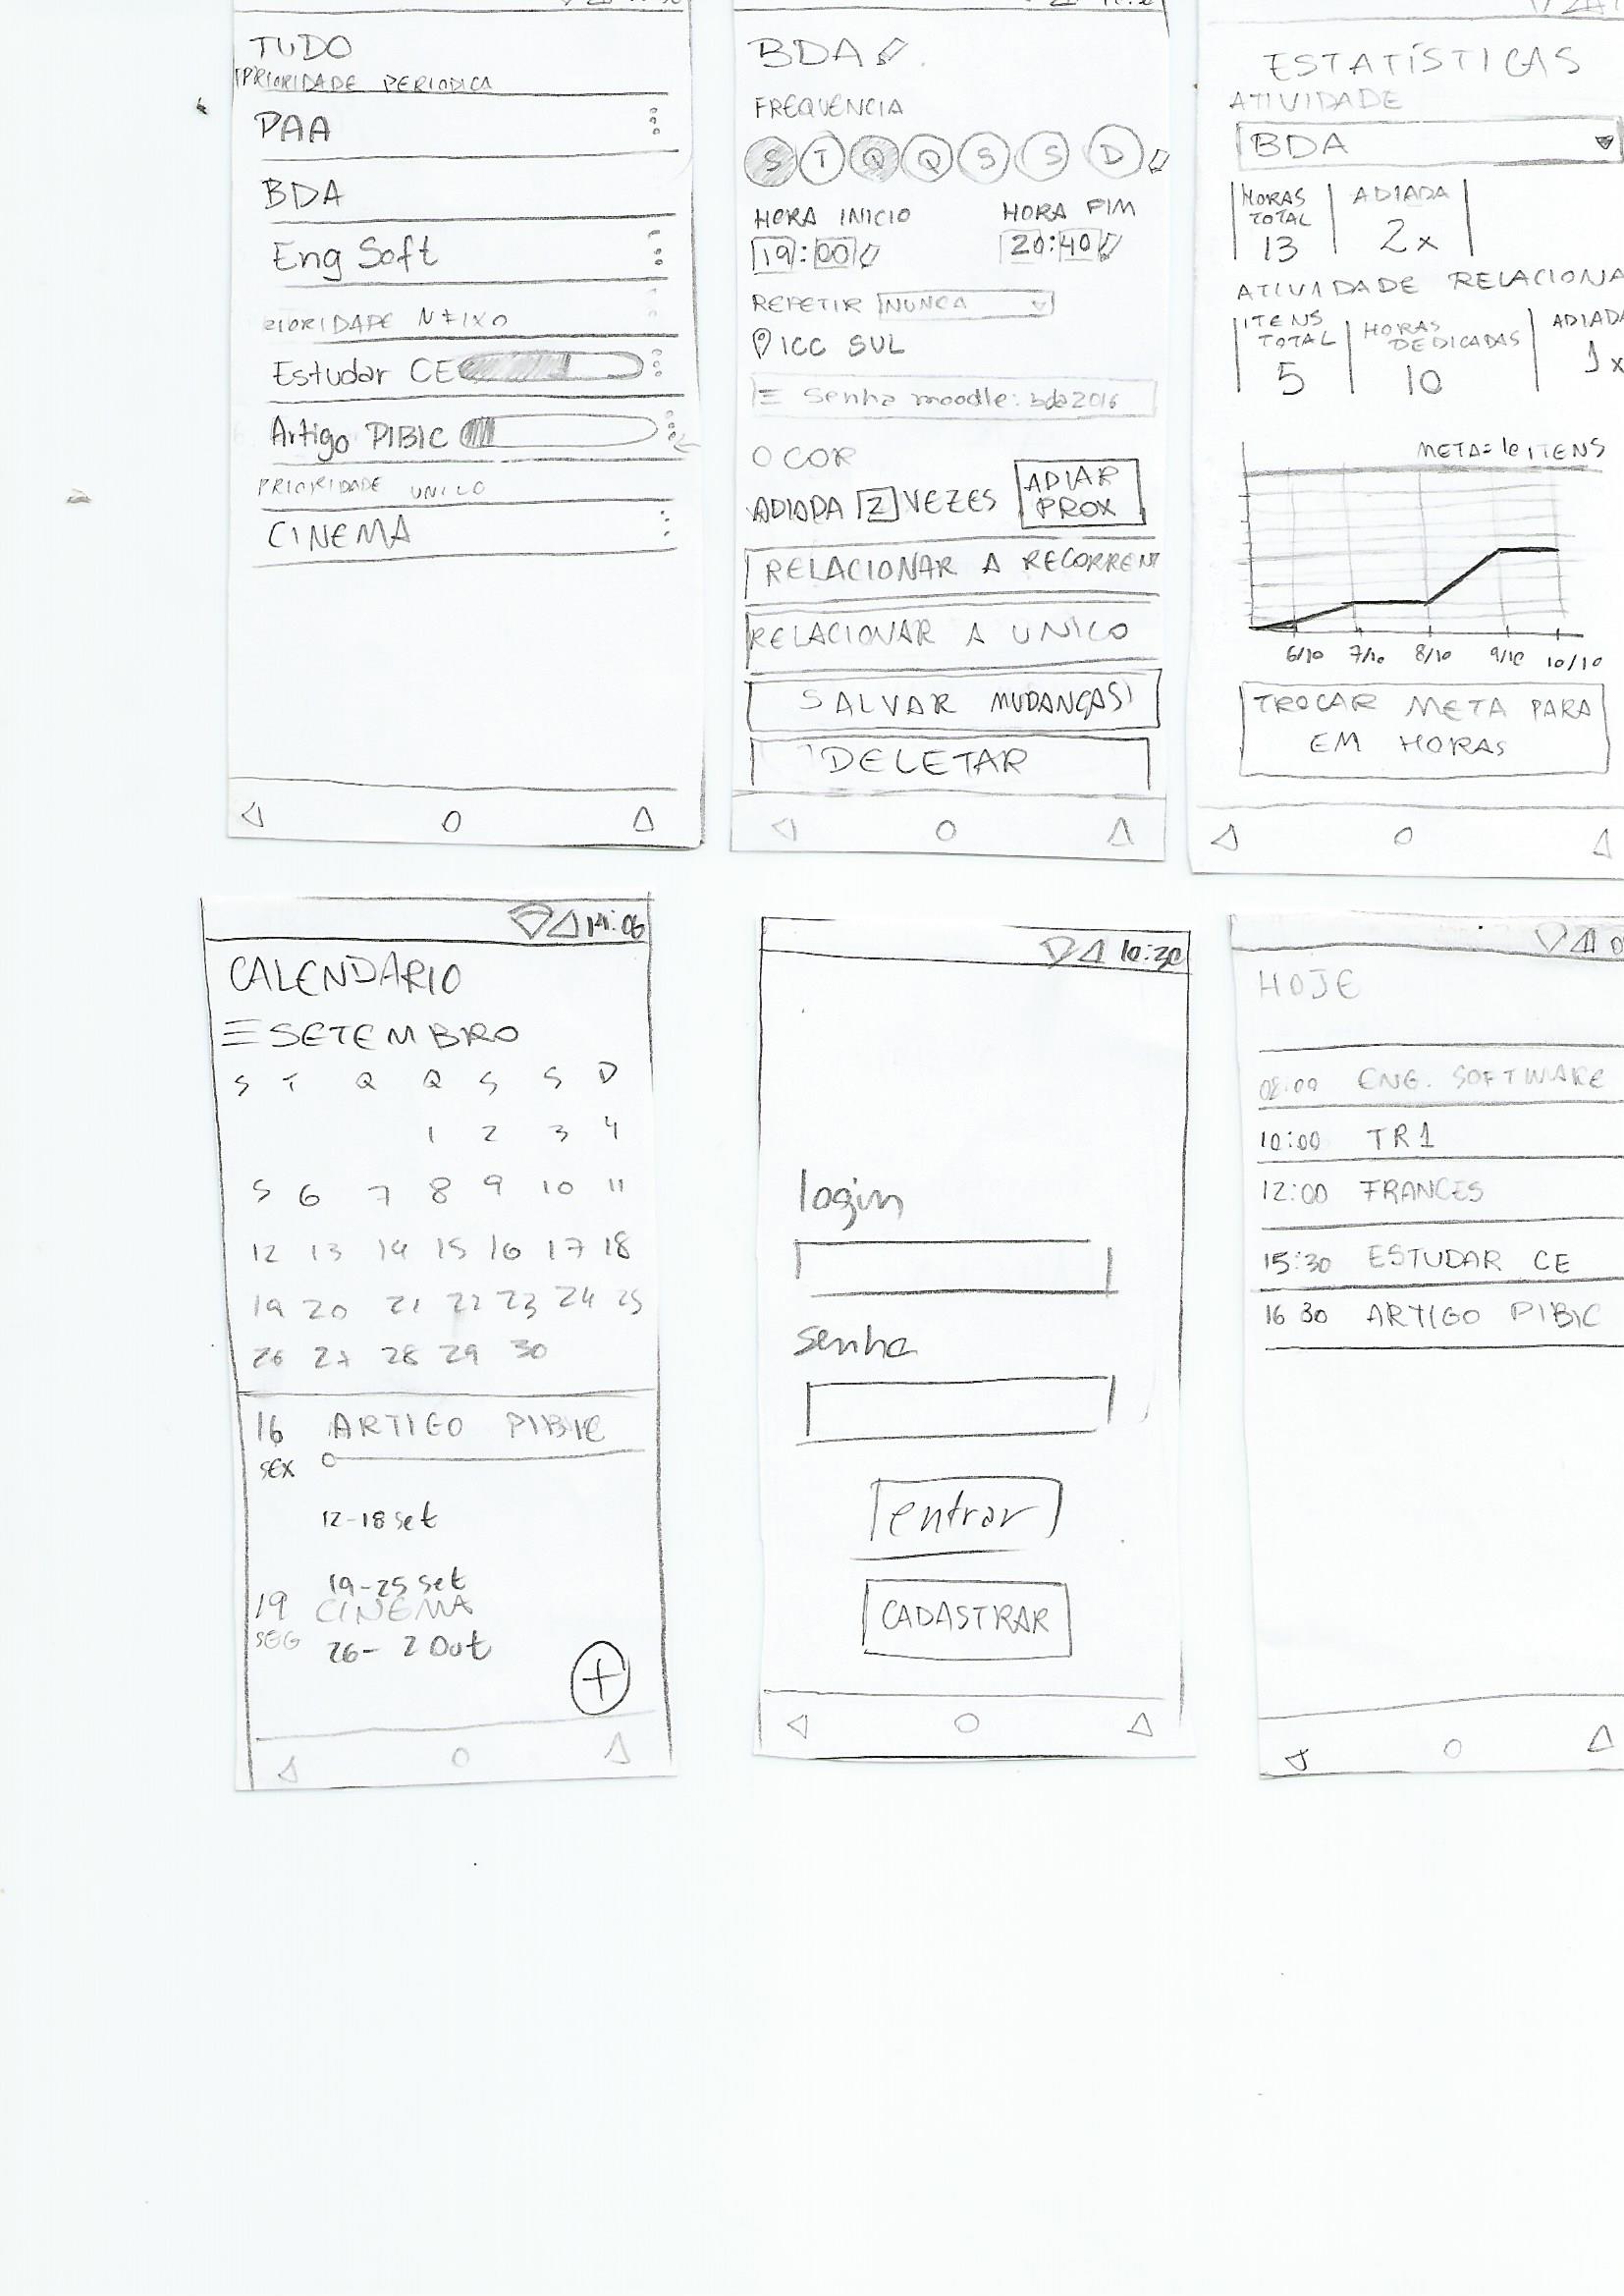 TUDO
PRIORIDADE PERIODICA
PAA
BDA
Eng Soft
Estudar CE
Artigo PIBIC
PRIORIDADE UNICO
CINEMA
BDA
FREQUENCIA
S T Q Q S S D
HORA INICIO HORA FIM
19:00 20:40
REPETIR NUNCA
ICC SUL
Senha moodle: bda2016
O COR
ADIADA 2 VEZES ADIAR PROX
RELACIONAR A RECORRENT
RELACIONAR A UNICO
SALVAR MUDANÇAS
DELETAR
ESTATÍSTICAS
ATIVIDADE
BDA
HORAS TOTAL ADIADA
13 2x
ATIVIDADE RELACIONA
ITENS TOTAL HORAS DEDICADAS ADIADA
5 10 1x
META=10 ITENS
6/10 7/10 8/10 9/10 10/10
TROCAR META PARA
EM HORAS
14:06
CALENDARIO
SETEMBRO
S T Q Q S S D
1 2 3 4
5 6 7 8 9 10 11
12 13 14 15 16 17 18
19 20 21 22 23 24 25
26 27 28 29 30
16 ARTIGO PIBIC
SEX
12-18 set
19-25 set
19 CINEMA
SEG
26- 2 Out
+
10:30
login
senha
entrar
CADASTRAR
HOJE
08:00 ENG. SOFTWARE
10:00 TR1
12:00 FRANCES
15:30 ESTUDAR CE
16 30 ARTIGO PIBIC